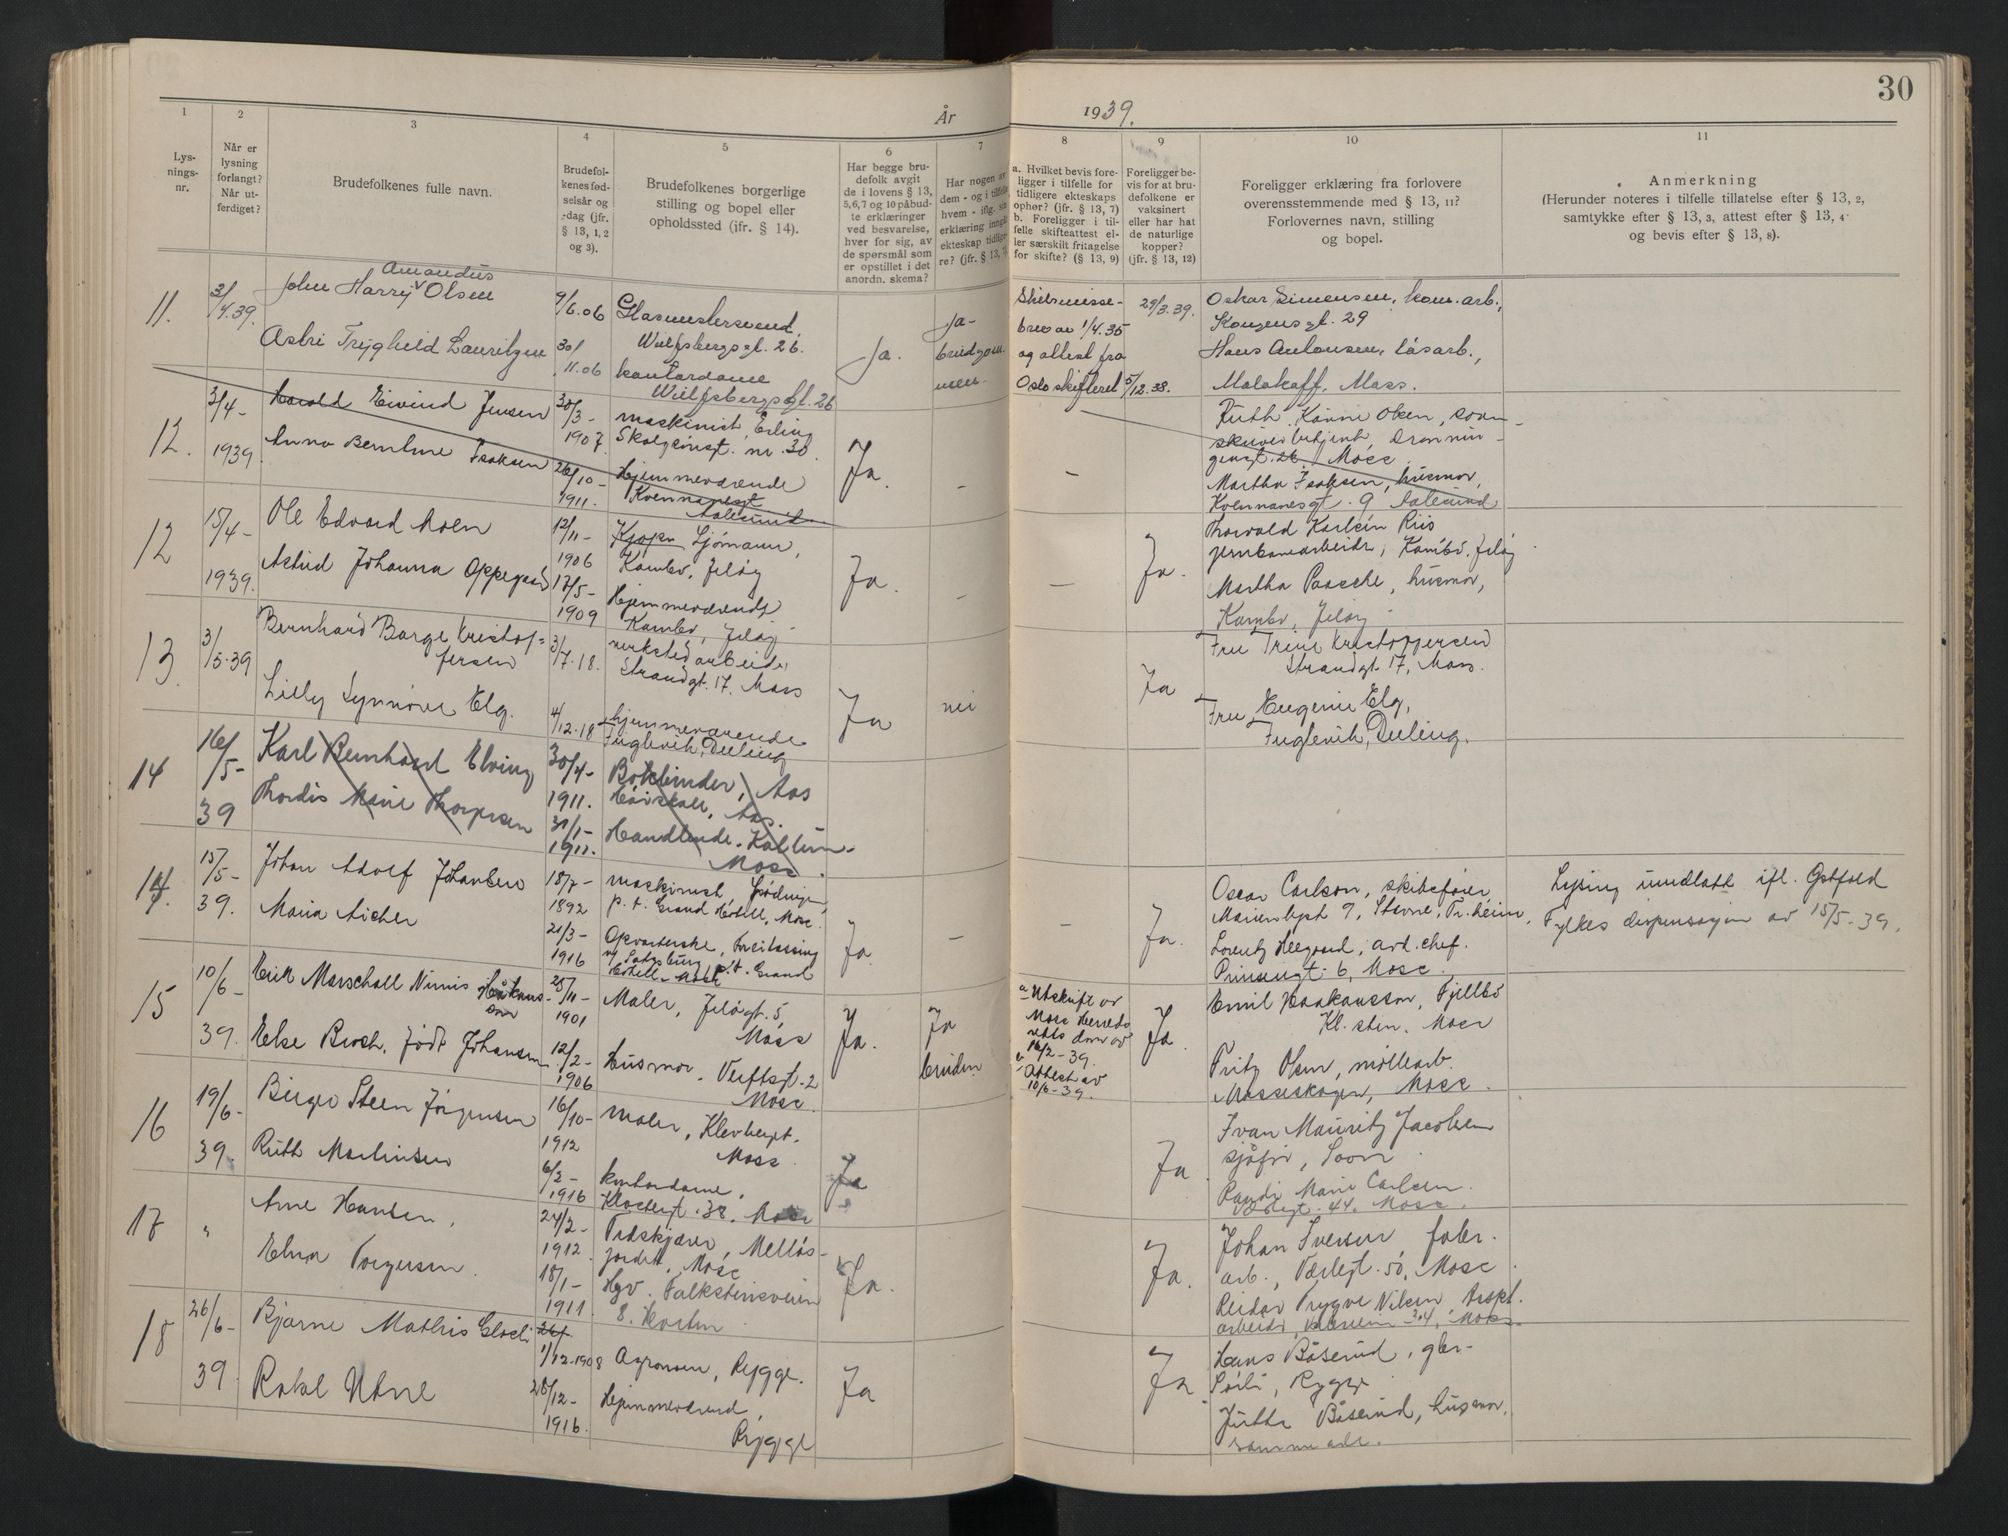 30
År 1939.
1 2 3 4 5 6 7 8 9 10 11
Lys-
nings-
nr.
Når er
lysning
forlangt?
Når ut-
ferdiget?
Brudefolkenes fulle navn.
Brudefol-
kenes fød-
selsår og
-dag (jfr.
§ 13, 1, 2
og 3).
Brudefolkenes borgerlige
stilling og bopel eller
opholdssted (ifr. § 14).
Har begge bru-
defolk avgit
de i lovens § 13,
5,6,7 og 10 påbud-
te erklæringer
ved besvarelse,
hver for sig, av
de spørsmål som
er opstillet i det
anordn. skema?
Har nogen av
dem - og i tilfelle
hvem - iflg. sin
erklæring inngåt
ekteskap tidlige-
re? (jfr. § 13, 7)
a. Hvilket bevis fore-
ligger i tilfelle for
tidligere ekteskaps
opher? (jfr. § 13, 7)
b. Foreligger i til-
felle skifteattest el-
ler særskilt fritagelse
for skifte? (§ 13, 9)
Foreligger be-
vis for at bru-
defolkene er
vaksinert
eller har hat
de naturlige
kopper?
(jfr. § 13, 12)
Foreligger erklæring fra forlovere
overensstemmende med § 13, 11?
Forlovernes navn, stilling
og bopel.
Anmerkning
(Herunder noteres i tilfelle tillatelse efter § 13, 2,
samtykke efter § 13, 3, attest efter § 13, 4
og bevis efter § 13, 8).
11.
3/
4.39.
Amandus
John Harry Olsen
Astri Tryghild Lauritzen
9/
6.06
30/
11.06
Glasmestersvend,
Wulfsbergsgt. 26.
kontordame
Wulfsbergsgt. 26
Ja.
Ja-
brudgom
men.
Skilsmisse-
brev av 1/4.35
og attest fra
Oslo skifteret 5/12.38.
29/3.39.
Oskar Simensen, kom. arb.,
Kongensgt. 29
Hans Antonsen, låsarb.,
Malakoff, Moss.
12.
3/4-
1939.
Harald Eivind Jensen
Anna Berntine Isaksen
30/
3-
1907.
26/
10-
1911.
maskinist, Erling
Skalgsonsgt. nr. 30.
Hjemmeværende
Kvennanesgt
Aalesund
Ja.
-
-
Ruth Kånne Olsen, soren-
skriverbetjent, Dronnin-
gensgt. 26, Moss
Martha Isaksen, husmor,
Kvennanesgt. 9 Aalesund
12
15/4-
1939.
Ole Edvard Moen
Astrid Johanna Oppegaard
12/11-
1906
17/5-
1909
Sjømann,
Kambo, Jeløy
Hjemmeværende
Kambo, Jeløy
Ja.
-
-
Ja.
Thorvald Karlsen Riis
jernbanearbeider, Kambo, Jeløy
Martha Paasche, husmor,
Kambo, Jeløy
13.
3/
5-39
Bernhard Borge Kristof-
fersen
Lilly Synnøve Elg.
3/
7.18.
4/
12.18
verkstedarbeider
Strandgt. 17, Moss
hjemmeværende
Fuglevik, Deling
Ja
nei
Ja
Fru Trine Kristoffersen
Strandgt. 17, Moss.
Fru Eugenie Elg,
Fuglevik, Deling.
14
16/
5-
39
Karl Bernhard Elving
Thordis Marie Thorpesen
30/4-
1911.
31/1-
Bokbinder, Aas
Aas.
Handlende.
Moss.
14.
15/
5-
39.
Johan Adolf Johansen
Maria Aicher
18/7-
1892
21/3-
1916
maskinist, Lødingen,
p.t. Grand Hotell, Moss.
Opvarterske, Freilassing
v/ Salzburg p.t. Grand
Hotell, Moss
Ja
-
-
Ja.
Oscar Carlson, skibsfører,
Marienlystgt 9, Stavne, Tr.heim,
Lorentz Heegaard, avd. chef.
Prinsensgt. 6, Moss.
Lysing undlatt ifl. Østfold
Fylkes dispensasjon av 15/5-39.
15
10/6-
39.
Erik Marschall Nimis Håkans-
son
Else Broch, født Johansen
25/
11-
1901
12/2-
1906
Maler, Jeløgt. 5,
Moss
Husmor, Verftsgt. 2
Moss.
Ja.
Ja
bruden
a Utskrift av
Moss Herreds
retts dom av
16/2-39.
b Attest av
10/6-39.
Ja.
Emil Haakansson, Fjellbo
Kl.sten, Moss
Fritz Olsen, møllearb.
Mosseskogen, Moss.
16
19/6-
39.
Birger Steen Jørgensen
Ruth Martinsen
16/
10-
1912
6/2-
1916
Maler, Klevbergt.
Moss.
kontordame,
Klostergt. 38, Moss
Ja
Ja.
Ivan Mauritz Jacobsen
sjåfør, Soon.
Randi Marie Carlsen.
Værlegt. 44, Moss.
17
"
Arne Hansen.
Elna Torgersen.
24/2-
1912.
18/1-
1911
Tidskjærer, Melløs-
jordet, Moss
Hgv. Falkstensveien
8. Horten
Ja.
Ja.
Johan Iversen faber.
arb., Værlegt. 50, Moss.
Reidar Trygve Nilsen,
arbeider, Moss.
18
26/6-
39
Bjarne Mathis
Rakel Utne
1/12-1908
28/12-
1916.
Agronom, Rygge.
Hjemmeværend,
Rygge
Ja
Ja.
Hans Båserud,
Rygge
Jutta Båserud, husmor,
samme adr.